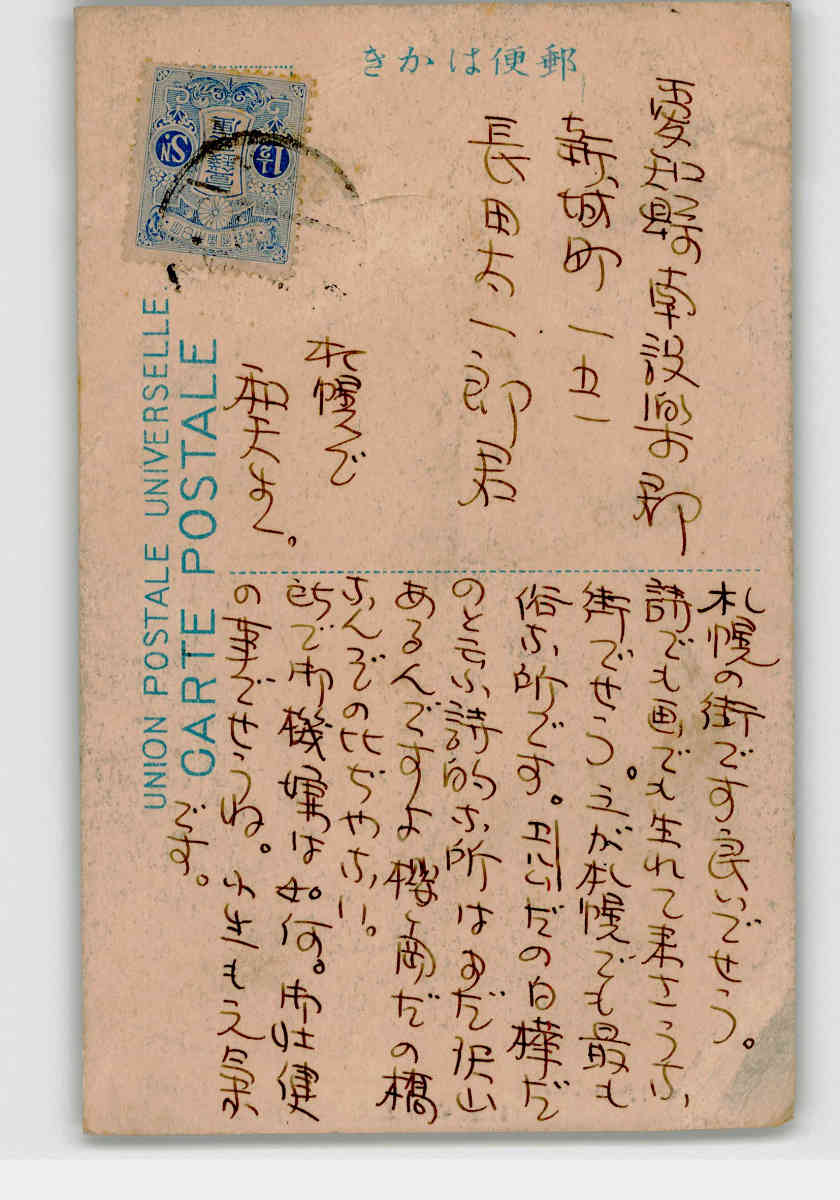 郵便はかき
愛知縣の南設楽郡
新城町一五一
長田太一郎君
札幌で
UNION POSTALE UNIVERSELLE
CARTE POSTALE
1½
SN
札幌の街です良いでせう。
詩でも画でも生れて来さうな
街でせう。之が札幌でも最も
俗な所です。エルムだの白樺だ
のと云ふ詩的な所はまだ沢山
あるんですよ
だの橋
なんぞの比ぢやない。
所で御機嫌は如何。御壮健
の事でせうね。小生も元気
です。